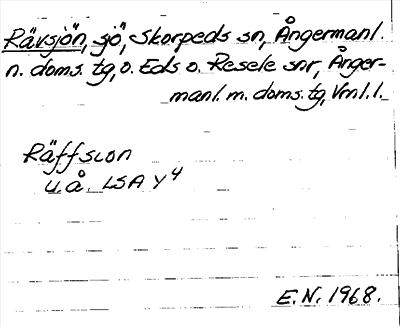 Rävsjön, sjö, Skorpeds sn, Ångermanl.
n. doms. tg, o. Eds o. Resele snr, Ånger-
manl. m. doms. tg, Vrnl. l.
Räffsion
u.å. LSA Y4
E.N. 1968.